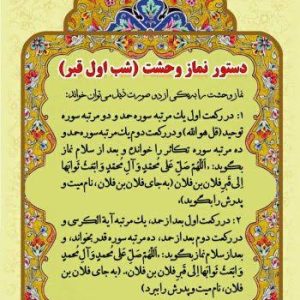 دستور نماز وحشت (شب اول قبر)
نماز وحشت را به یکی از دو صورت ذیل می‌توان خواند:
۱: در رکعت اول یک مرتبه سوره حمد و دو مرتبه سوره
توحید (قل هو الله) و در رکعت دوم یک مرتبه سوره حمد و
ده مرتبه سوره تکاثر را خوانده و بعد از سلام نماز
بگوید: ،اَللّهُمَّ صَلِّ عَلی مُحَمَّدٍ وَ آلِ مُحَمَّدٍ وَ ابْعَثْ ثَوابَها
اِلی قَبْرِ فلان بن فلان، (به جای فلان بن فلان، نام میت و
پدرش را بگوید).
۲: در رکعت اول بعد از حمد، یک مرتبه آیة الکرسی و
در رکعت دوم بعد از حمد، ده مرتبه سوره قدر بخواند، و
بعد از سلام نماز بگوید: ،اَللّهُمَّ صَلِّ عَلی مُحَمَّدٍ وَ آلِ مُحَمَّدٍ
وَ ابْعَثْ ثَوابَها اِلی قَبْرِ فلان بن فلان، (به جای فلان بن
فلان، نام میت و پدرش را ببرد)